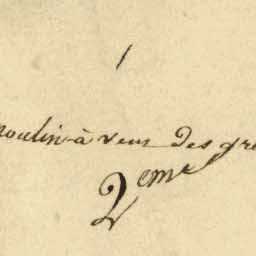 moulin à vent des gr
2eme